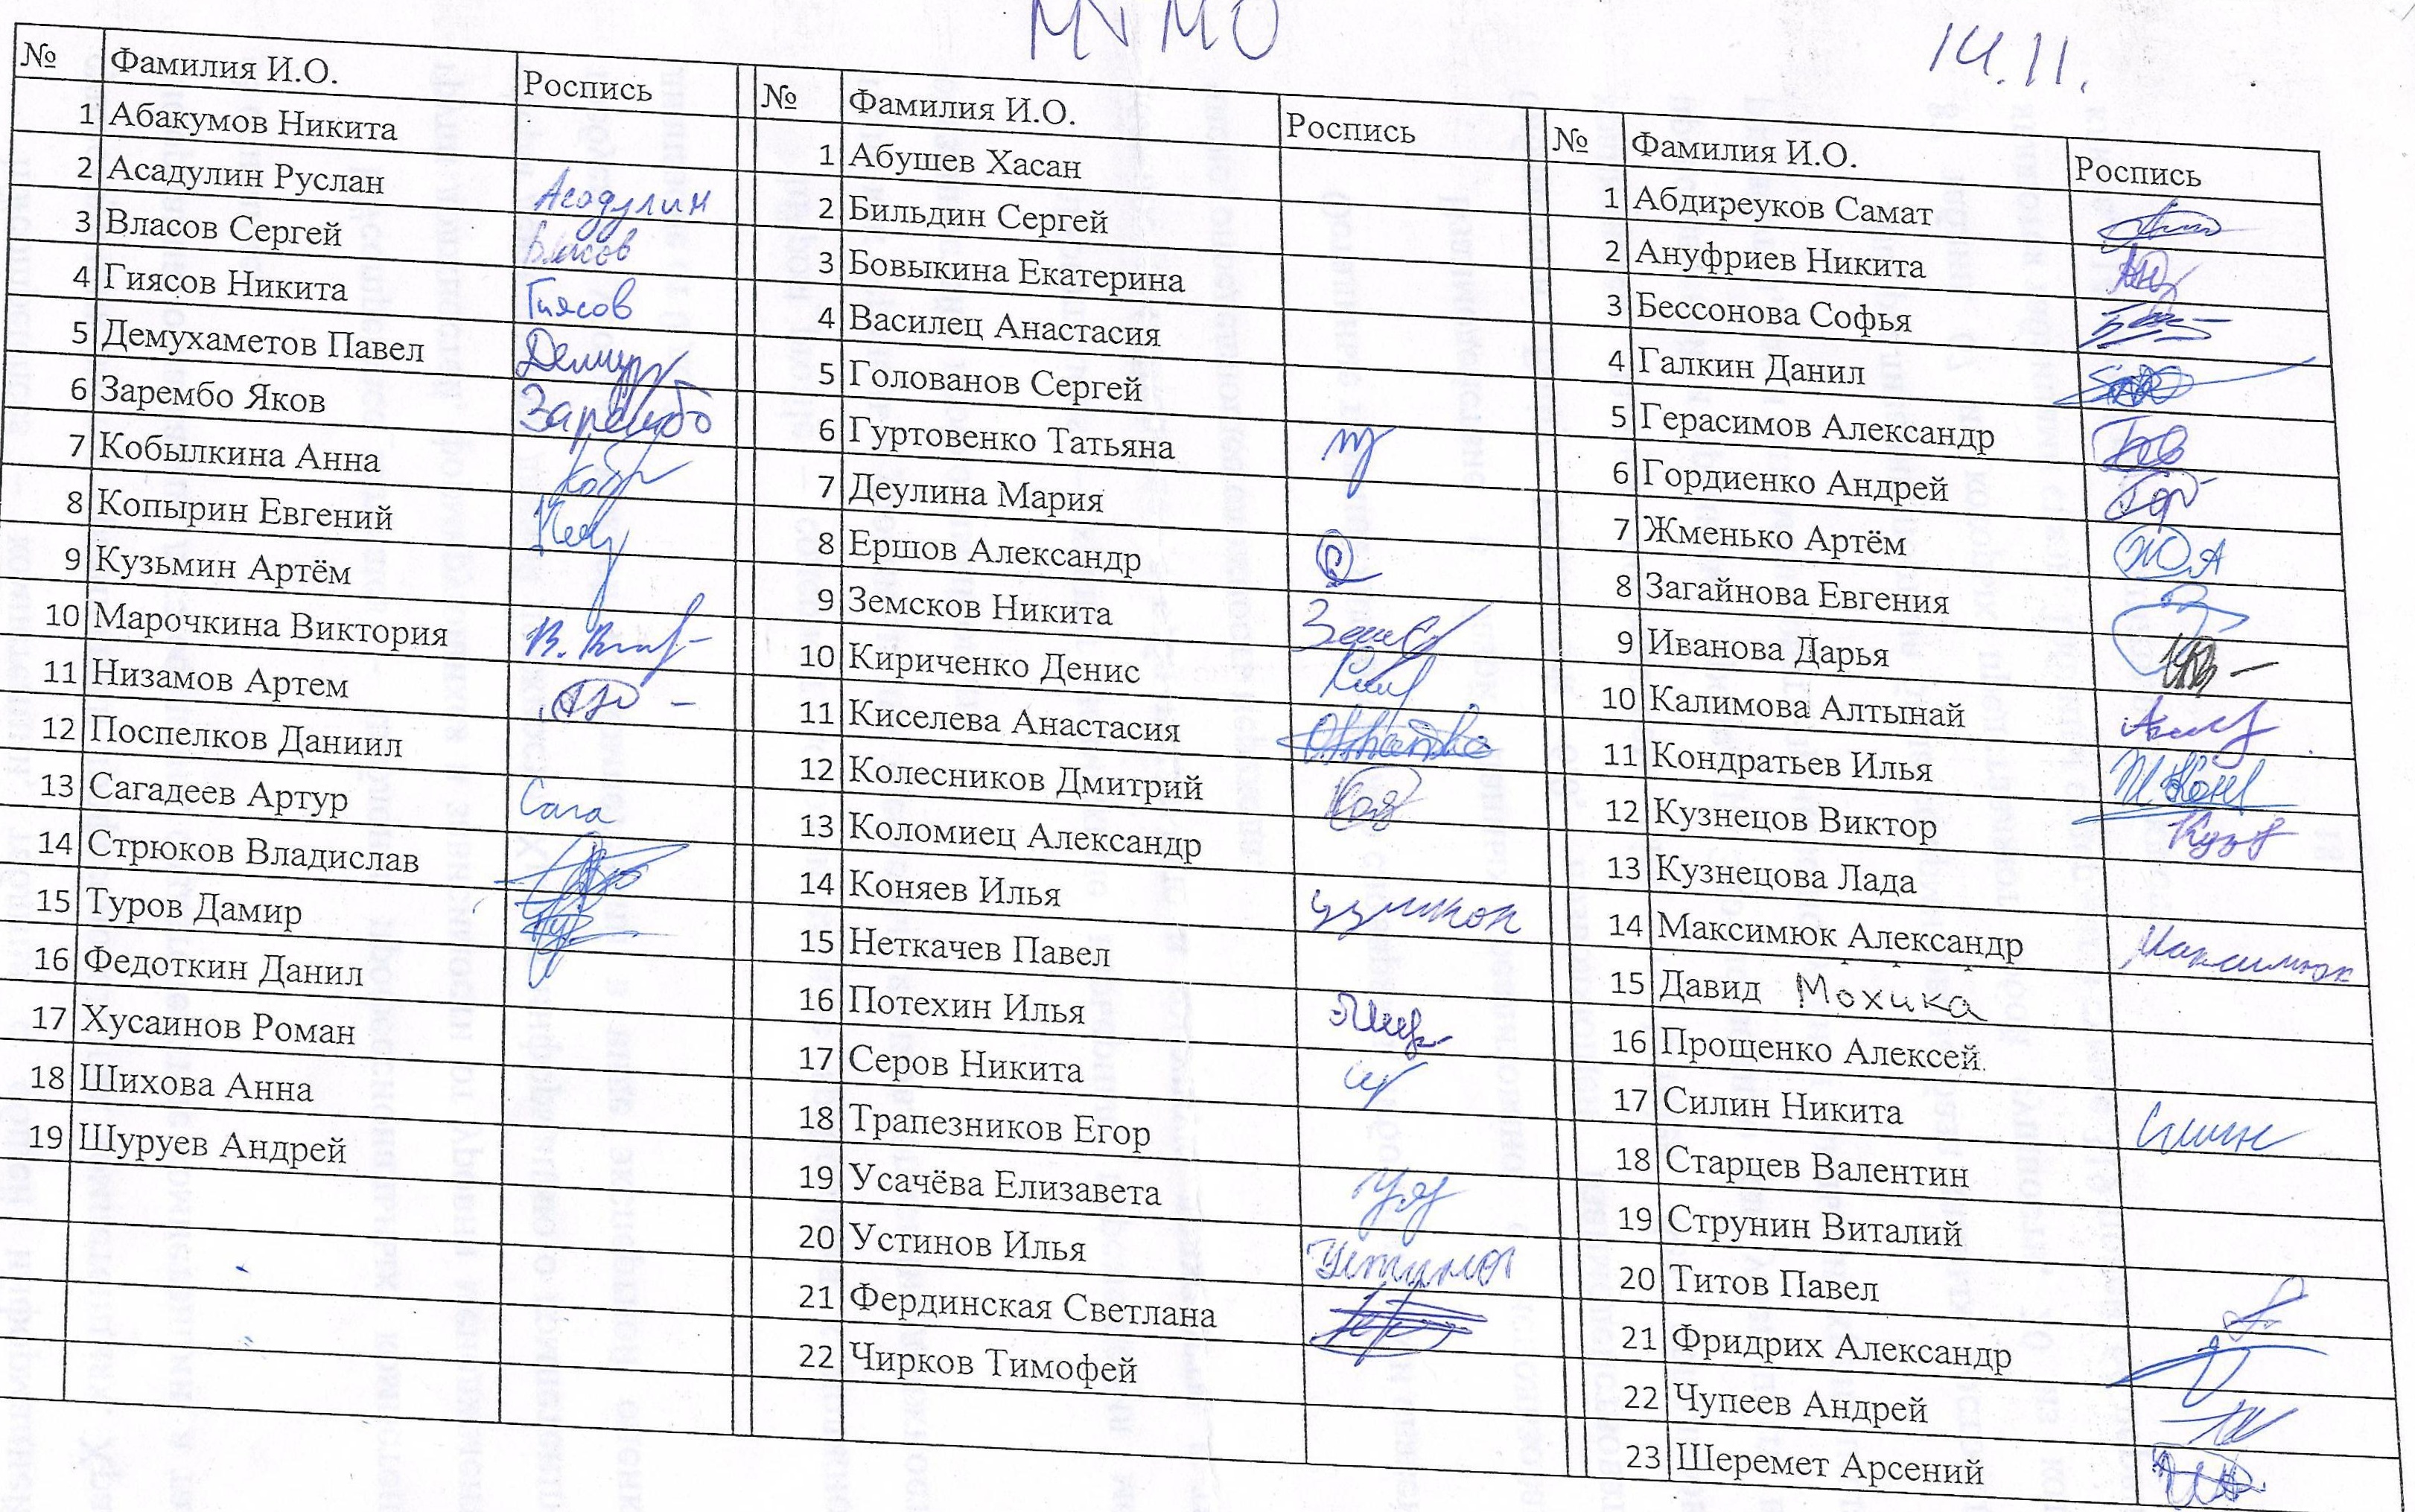 МиМО
14.11.
№ Фамилия И.О. Роспись
1 Абакумов Никита
2 Асадулин Руслан Асадулин
3 Власов Сергей Власов
4 Гиясов Никита Гиясов
5 Демухаметов Павел
6 Зарембо Яков Зарембо
7 Кобылкина Анна
8 Копырин Евгений
9 Кузьмин Артём
10 Марочкина Виктория
11 Низамов Артем
12 Поспелков Даниил
13 Сагадеев Артур Сага
14 Стрюков Владислав
15 Туров Дамир
16 Федоткин Данил
17 Хусаинов Роман
18 Шихова Анна
19 Шуруев Андрей
№ Фамилия И.О. Роспись
1 Абушев Хасан
2 Бильдин Сергей
3 Бовыкина Екатерина
4 Василец Анастасия
5 Голованов Сергей
6 Гуртовенко Татьяна
7 Деулина Мария
8 Ершов Александр
9 Земсков Никита
10 Кириченко Денис
11 Киселева Анастасия
12 Колесников Дмитрий
13 Коломиец Александр
14 Коняев Илья
15 Неткачев Павел
16 Потехин Илья
17 Серов Никита
18 Трапезников Егор
19 Усачёва Елизавета
20 Устинов Илья Устинов
21 Фердинская Светлана
22 Чирков Тимофей
№ Фамилия И.О. Роспись
1 Абдиреуков Самат
2 Ануфриев Никита
3 Бессонова Софья
4 Галкин Данил
5 Герасимов Александр
6 Гордиенко Андрей Гор
7 Жменько Артём
8 Загайнова Евгения
9 Иванова Дарья
10 Калимова Алтынай
11 Кондратьев Илья
12 Кузнецов Виктор
13 Кузнецова Лада
14 Максимюк Александр Максимюк
15 Давид Мохика
16 Прощенко Алексей
17 Силин Никита Силин
18 Старцев Валентин
19 Струнин Виталий
20 Титов Павел
21 Фридрих Александр
22 Чупеев Андрей
23 Шеремет Арсений